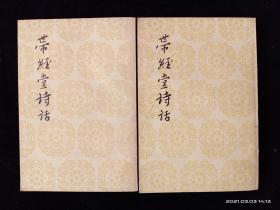 帶經堂詩話
帶經堂詩話
2021.03.03 14:13